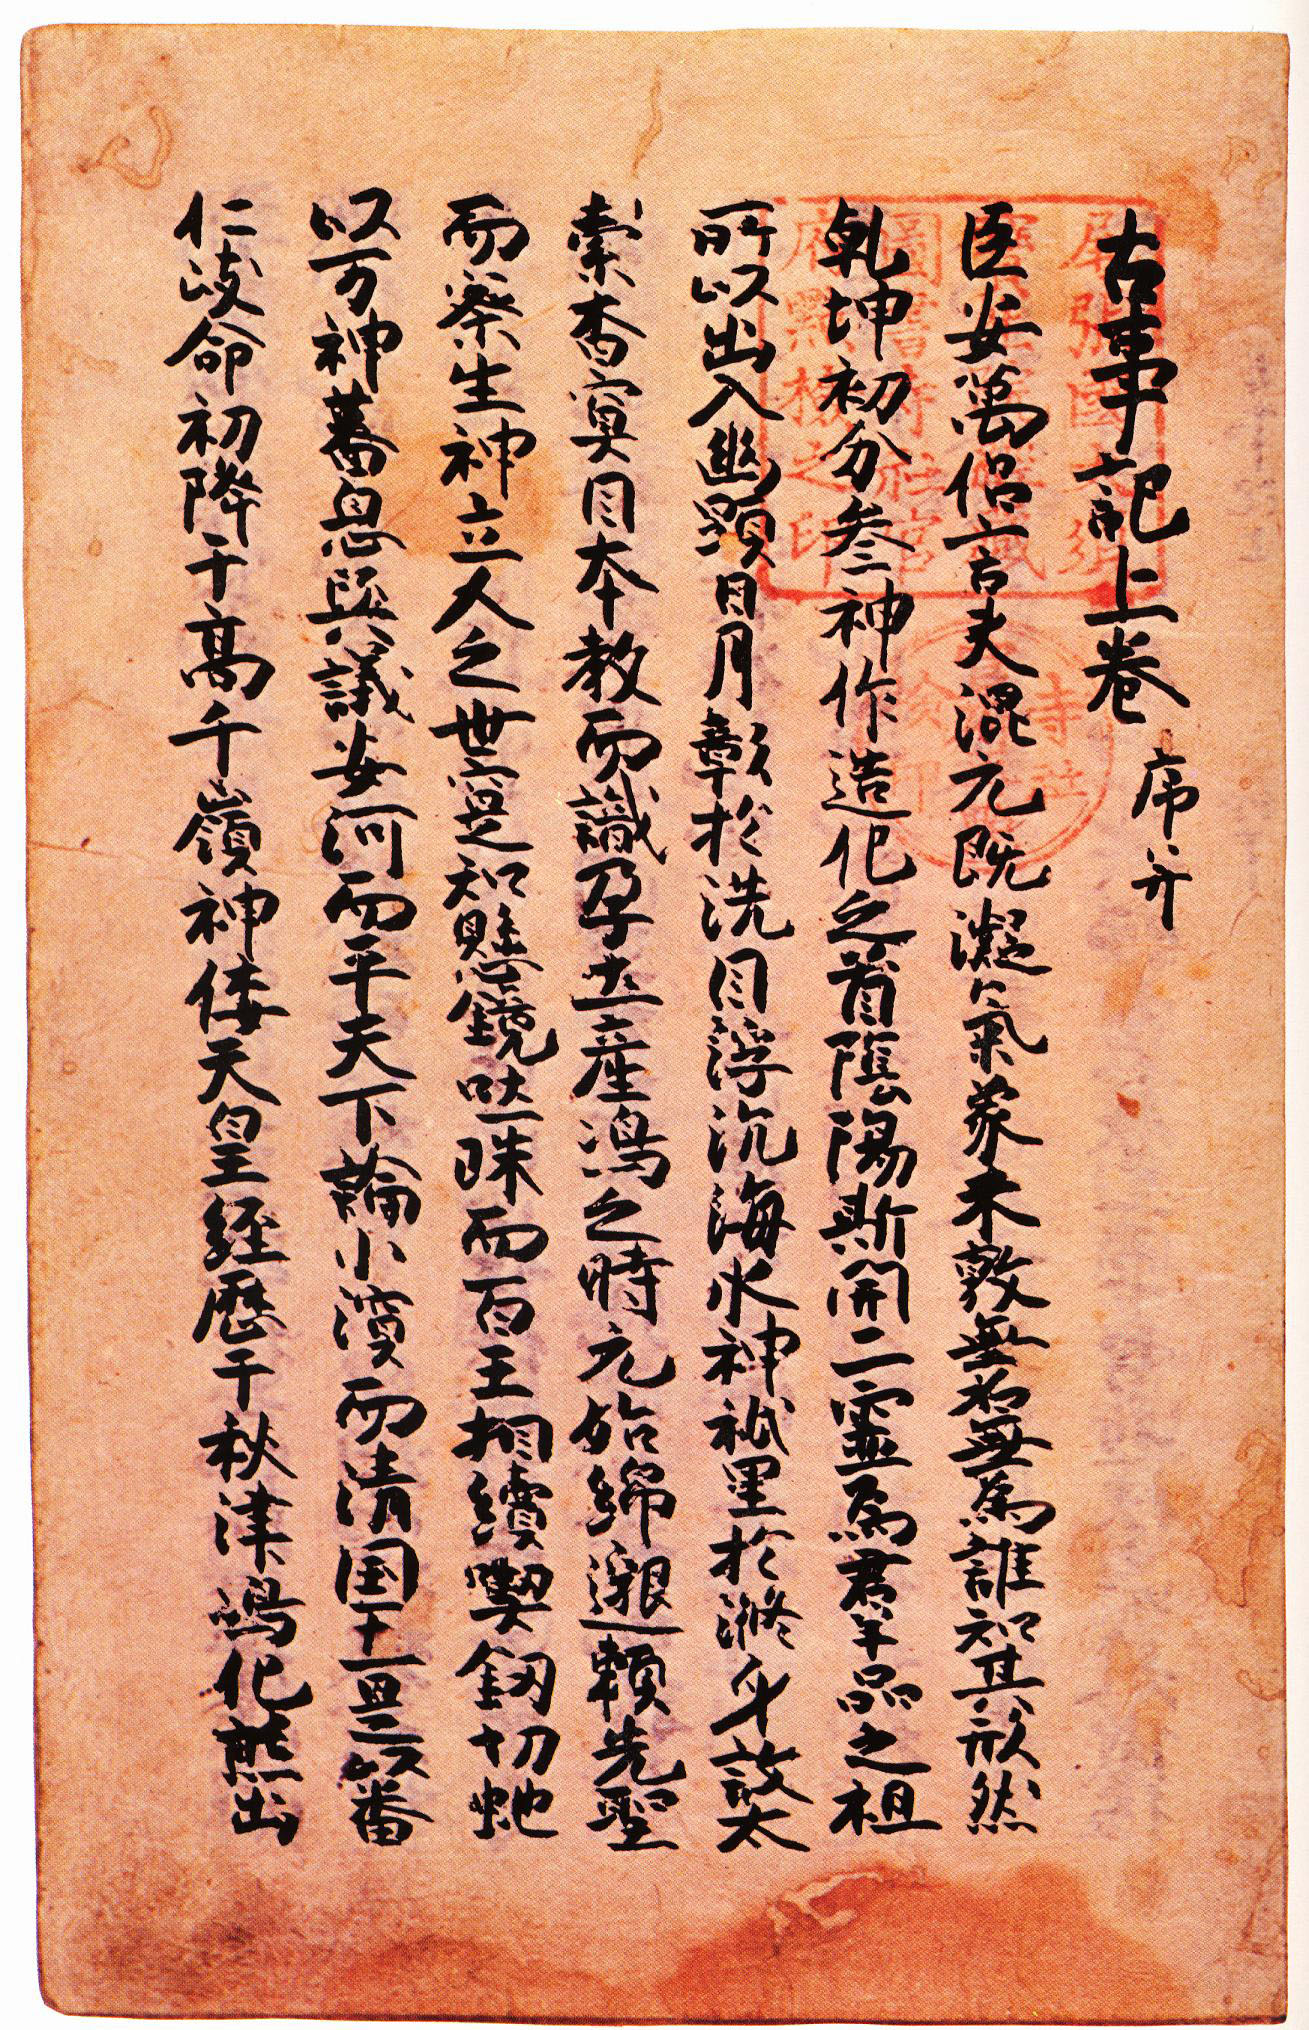 古事記上卷 序并
臣安萬侶言夫混元既凝氣象未敦無名無為誰知其形然
乾坤初分參神作造化之首陰陽斯開二靈為群品之祖
所以出入幽顯日月彰於洗目浮沉海水神祇呈於滌身故太
素杳冥因本教而識孕土產嶋之時元始綿邈頼先聖
而察生神立人之世寔知懸鏡吐珠而百王相續喫釼切蛇
以万神蕃息與議安河而平天下論小濱而清国土是以番
仁岐命初降于高千嶺神倭天皇経歷于秋津嶋化熊出
尾張國大須
寶生院藏
圖書寺社官
府點檢之印
寺社